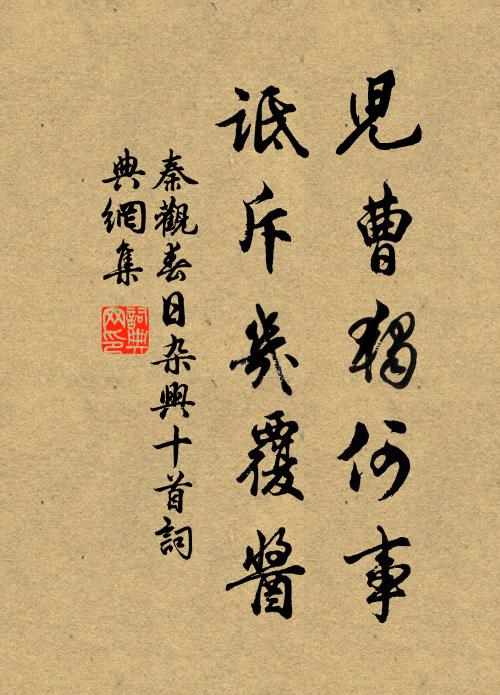 兒曹獨何事
詆斥幾覆醬
秦觀春日杂興十首詞
典網集
詞典
网印